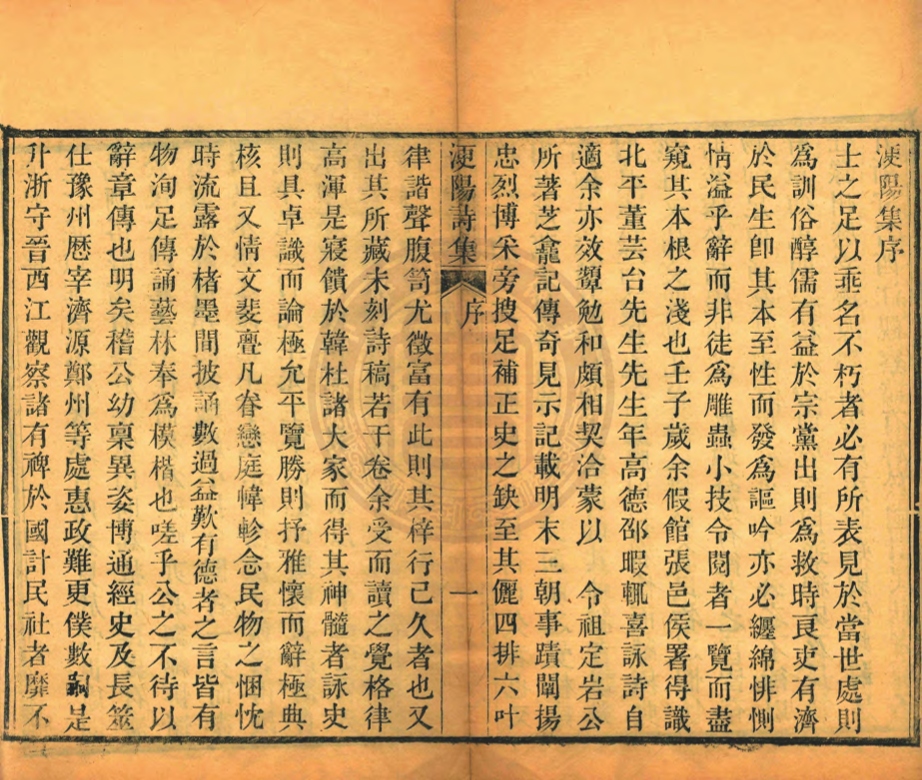 浭陽集序
士之足以乖名不朽者必有所表見於當世處則
為訓俗醇儒有益於宗黨出則為救時良吏有濟
於民生卽其本至性而發為謳吟亦必纏綿悱惻
情溢乎辭而非徒為雕蟲小技令閱者一覽而盡
窺其本根之淺也壬子歲余假館張邑侯署得識
北平董芸台先生先生年高德邵暇輒喜詠詩自
適余亦效顰勉和頗相契洽蒙以　令祖定岩公
所著芝龕記傳奇見示記載明末三朝事蹟闡揚
忠烈博采旁搜足補正史之缺至其儷四排六叶
浭陽詩集　序　一
律諧聲腹笥尤徵富有此則其梓行已久者也又
出其所藏未刻詩稿若干卷余受而讀之覺格律
高渾是寢饋於韓杜諸大家而得其神髓者詠史
則具卓識而論極允平覽勝則抒雅懷而辭極典
核且又情文斐亹凡眷戀庭幃軫念民物之悃忱
時流露於楮墨間披誦數過益歎有德者之言皆有
物洵足傳誦藝林奉為模楷也嗟乎公之不待以
辭章傳也明矣稽公幼稟異姿博通經史及長筮
仕豫州歷宰濟源鄭州等處惠政難更僕數嗣是
升浙守晉西江觀察諸有裨於國計民社者靡不